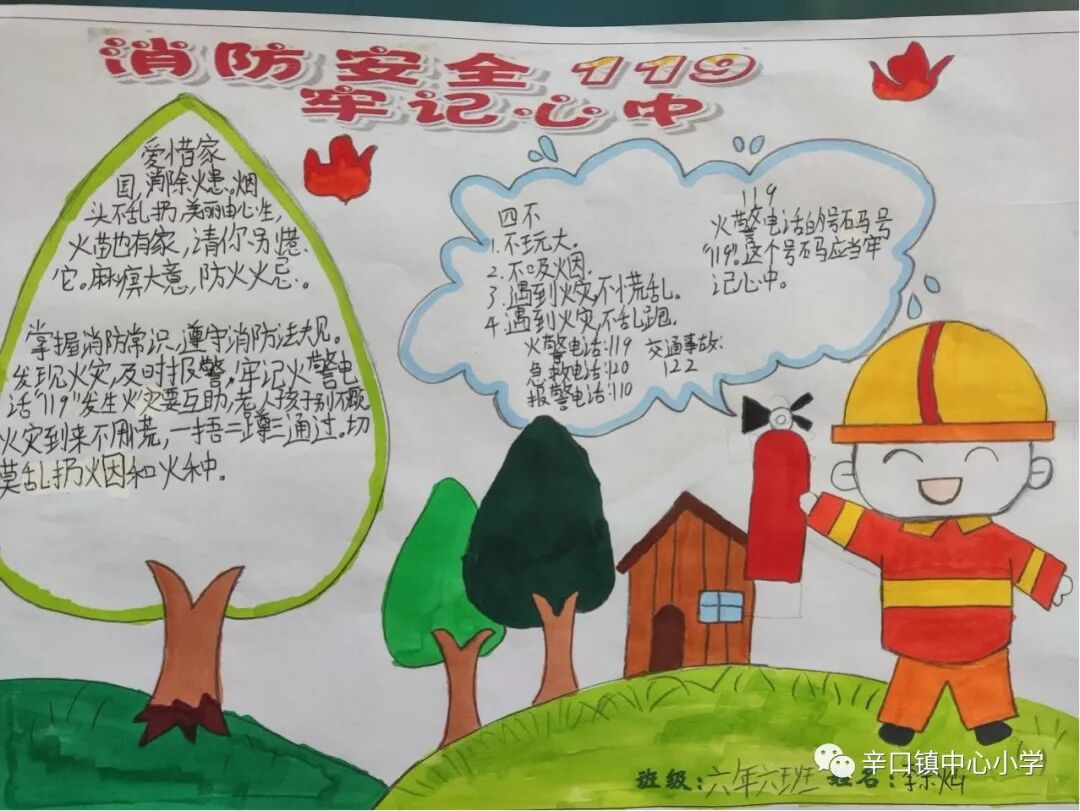 消防安全119
牢记心中
爱惜家
国,消除火患。烟
头不乱扔,美丽由心生,
火苗也有家,请你另惹
它。麻痹大意,防火火忌。
掌握消防常识,遵守消防法规。
发现火灾,及时报警。牢记火警电
话“119”发生火灾要互助,老人孩子别不顾
火灾到来不用慌,一捂二蹲三通过。切
莫乱扔烟和火种。
四不
1.不玩大。
2.不吸烟.
3.遇到火灾,不慌乱。
4.遇到火灾,不乱跑.
火警电话:119
急救电话:120
报警电话:110
交通事故:
122
119
火警电话的号码号
“119”。这个号码应当牢
记心中。
班级:六年六班 姓名:
辛口镇中心小学